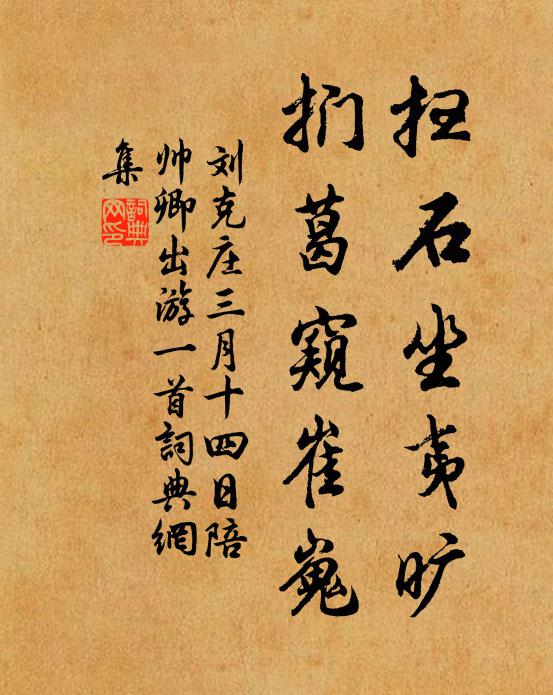 扫石坐夷旷
扪葛窥崔嵬
刘克庄三月十四日陪
帅卿出游一首詞典網
集
詞典
网印